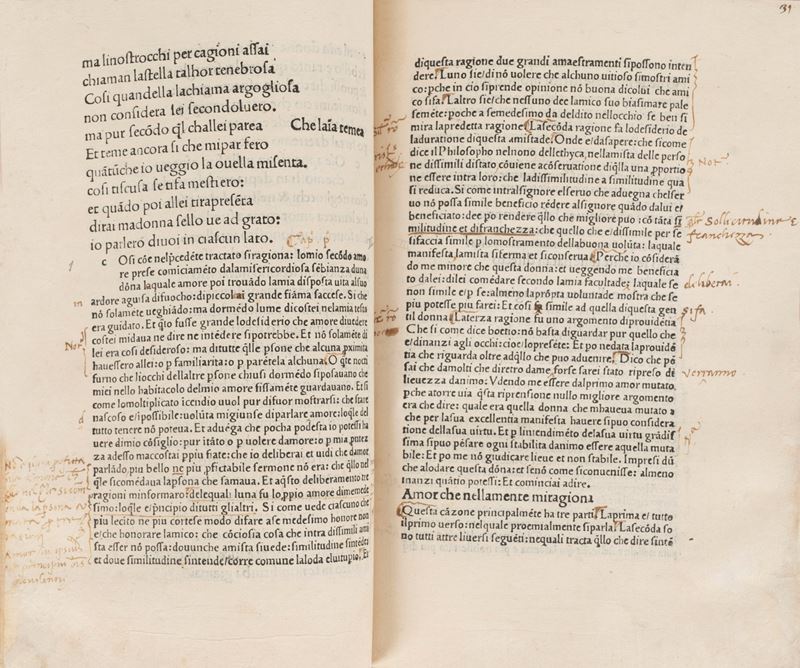 ma linostrocchi per cagioni assai
chiaman lastella talhor tenebrosa
Cosi quandella lachiama argogliosa
non considera lei secondoluero.
ma pur secõdo ql challei parea
Che laīa temea
Et teme ancora si che mipar fero
quātūche io ueggio la ouella misenta.
cosi tiscusa se tifa mestiero:
et quãdo poi allei tirapreseta
dirai madonna sello ue ad grato:
io parlero diuoi in ciascun lato.
Cap pº p
c Osi cõe nelpcedēte tractato siragiona: lomio secõdo amo
re prese comiciamēto dalamisericordiosa sēbianza duna
dōna laquale amore poi trouãdo lamia disposita alsuo
ardore aguisa difuocho: dipiccolai grande fiãma faccese. Si che
nõ solamēte ueghiãdo: ma dormēdo lume dicostei nelamia testa
era guidato. Et qto fusse grande lodesiderio che amore diuedere
costei midaua ne dire ne intēdere sipotrebbe. Et nõ solamēte di
lei era cosi desideroso: ma ditutte qlle psone che alcuna pximita
hauessero allei: o p familiarita: o p parētela alchuna. O qte nocti
furno che liocchi dellaltre psone chiusi dormēdo siposauano che
mici nello habitacolo delmio amore fissamēte guardauano. Et si
come lomoltiplicato icendio uuol pur difuor mostrarsi: che stare
nascoso e/ipossibile: uoluta migiunse diparlare amore: loqle del
tutto tenere nõ poteua. Et aduēga che pocha podesta io potessi ha
uere dimio cõsiglio: pur itãto o p uolere damore: o p mia ptez
za adesso maccostai ppiu fiate: che io deliberai et uidi che damor
parlãdo, piu bello ne piu, pfictabile sermone nõ era: che qllo nel
qle sicomēdaua lapsona che samaua. Et aqsto deliberamento tre
ragioni minformaro: delequali luna fu lo, ppio amore dimemede
simo: loqle e/pncipio ditutti glialtri. Si come uede ciascuno che
piu lecito ne piu cortese modo difare ase medesimo honore non
e/che honorare lamico: che cõciosia cosa che intra dissimili ami
sta esser nõ possa: douunche amista siuede: similitudine sintēdei
et doue similitudine sintende/corre comune laloda eluitupio. Et
31
diquesta ragione due grandi amaestramenti sipossono inten
dere. Luno sie/di nõ uolere che alchuno uitioso simostri ami
co: pche in cio siprende opinione nõ buona dicolui che ami
co sifa. Laltro sie/che nessuno dee lamico suo biasimare pale
semēte: poche a semedesimo da deldito nellocchio se ben si
mira lapredetta ragione. Lasecõda ragione fa lodesiderio de
laduratione diquesta amistade. Onde e/dasapere: che sicome
dice il Philosopho nelnono dellethyca, nellamista delle perso
ne dissimili distato, cõuiene acõseruatione diqlla una pportio
ne essere intra loro: che ladissimilitudine a similitudine qua
si reduca. Si come intralsignore elseruo che aduegna chelser
uo nõ possa simile beneficio rēdere alsignore quãdo dalui e/
beneficiato: dee po rendere qllo che migliore puo: cõ tãta si
militudine et difranchezza: che quello che e/dissimile per se
sifaccia simile p lomostramento dellabuona uolūta: laquale
manifesta, lamista siferma et siconserua. Perche io cõsiderã
do me minore che questa donna: et ueggendo me beneficia
to dalei: dilei comēdare secondo lamia facultade: laquale se
non simile e/p se: almeno laprõpta uoluntade mostra che se
piu potesse piu farei: Et cosi si simile ad quella diquesta gen
til donna. Laterza ragione fu uno argomento diprouidētia
Che si come dice boetio: nõ basta diguardar pur quello che
e/dinanzi agli occhi: cioe/lopresēte: Et po nedata laprouidē
tia che riguarda oltre adqllo che puo aduenire. Dico che pē
sai che damolti che diretro dame, forse sarei stato ripreso di
lieuezza danimo: Vdendo me essere dalprimo amor mutato.
pche atorre uia qsta riprensione nullo migliore argomento
era che dire: quale era quella donna che mhaueua mutato a
che per lasua excellentia manifesta hauere sipuo considera
tione dellasua uirtu. Et p lintendimēto delasua uirtu grãdis
sima sipuo pēsare ogni stabilita danimo essere aquella muta
bile: Et po me nõ giudicare lieue et non stabile. Impresi dū
che alodare questa dõna: et senõ come siconuenisse: almeno
inanzi quãtio potessi: Et cominciai adire.
Amor che nellamente miragiona
Questa cãzone principalmēte ha tre parti. Laprima e/ tutto
ilprimo uerso: nelquale proemialmente siparla. Lasecõda so
no tutti attre liuersi seguēti: nequali tracta qllo che dire sintē
Not
Not
Sollicitudine E
franchezza.
deliberai
si fa.
verranno